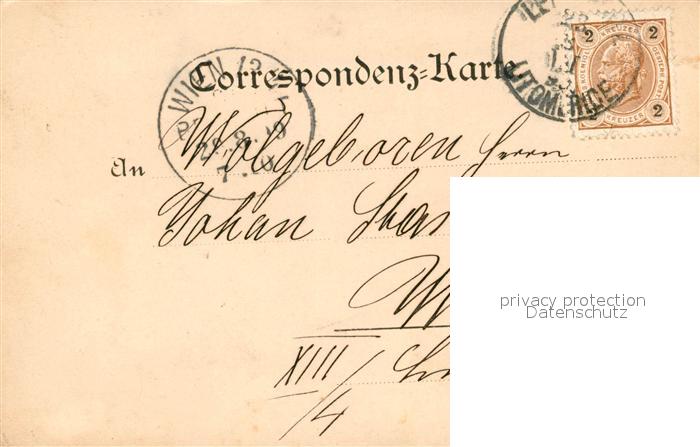 LITOMĚŘICE
2 KREUZER 2
2 KREUZER 2
WIEN 13
Correspondenz-Karte.
An Wolgeboren Herrn
Johan
privacy protection
Datenschutz
XIII/4